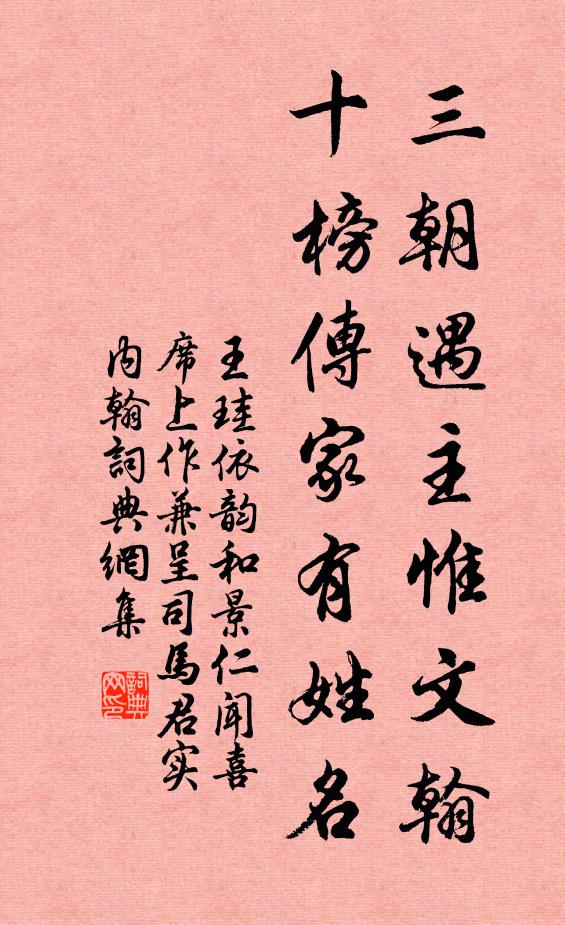 三朝遇主惟文翰
十榜傳家有姓名
王珪依韵和景仁闻喜
席上作兼呈司馬君实
内翰詞典網集
詞典
网印